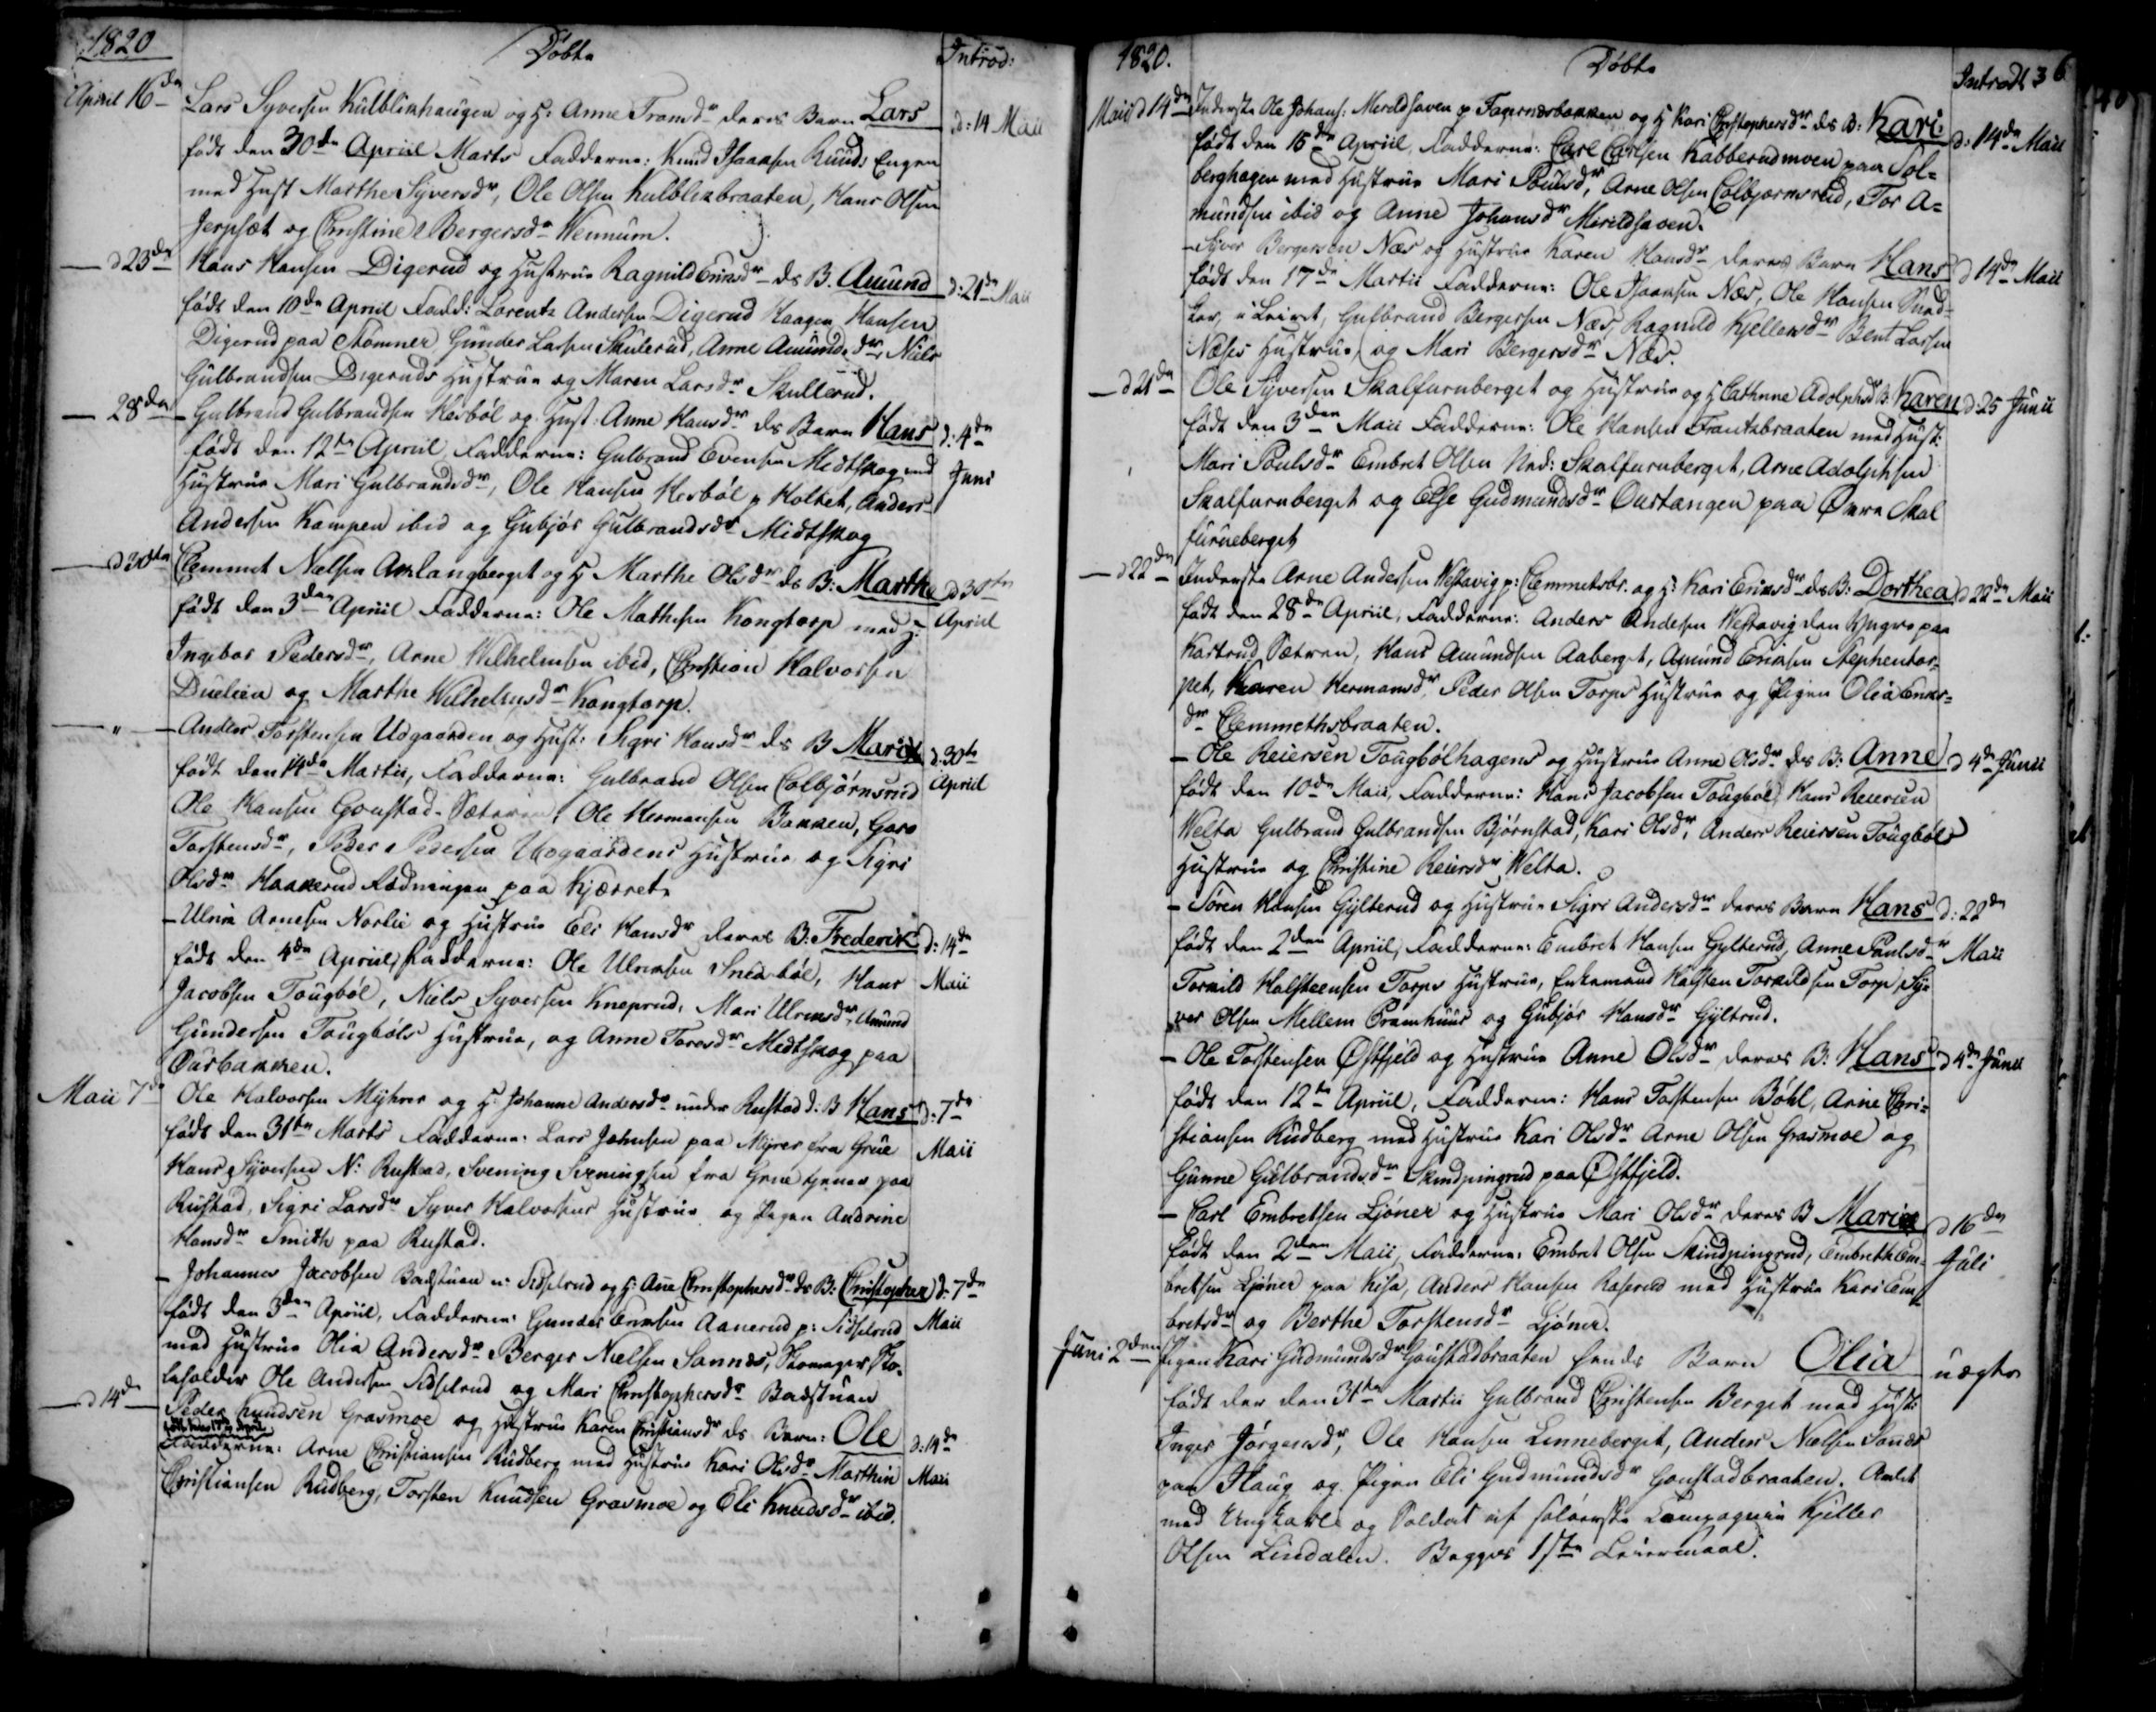 1820
Døbte
Introd:
April 16de Lars Syversen Kulblikhaugen og H: Anne Framdr deres Barn Lars d: 14 Maii
født den 30te Apriil Marts Fadderne: Knud Isaaksen Ruuds Engen
med Hust Marthe Syversdr, Ole Olsen Kulblikbraaten, Hans Olsen
Jerpset og Christine Bergersdr Wennum.
d 23de Hans Hansen Digerud og Hustrue Ragnild Ericsdr ds B. Amund d: 21de Maii
født den 10de April Fadd: Lorentz Andersen Digerud Haagen Hansen
Digerud paa Stommer Gunder Larsen Skulerud, Anne Amundsdr, Niels
Gulbrandsen Digeruds Hustrue og Maren Larsdr Skullerud.
28de Gulbrand Gulbrandsen Kesböl og Hust: Anne Hansdr ds Barn Hans d: 4de
født den 12te Apriil Fadderne: Gulbrand Evensen Midtskog med Juni
Hustrue Mari Gulbrandsdr, Ole Hansen Kesböl p Holtet, Anders
Andersen Kampen ibid og Gubjör Gulbrandsdr Midtskog
d 30te Clemmet Nielsen Aurlangberget og H Marthe Olsdr ds B: Marthe d 30te
født den 3den Apriil Fadderne: Ole Mathisen Kongtorp med H: Apriil
Ingebor Pedersdr, Arne Wilhelmsen ibid, Christian Halvorsen
Duelien og Marthe Wilhelmsdr Kongtorp.
" Anders Torstensen Udgaarden og Hust: Sigri Hansdr ds B Mari d: 30te
født den 14de Martii, Fadderne: Gulbrand Olsen Colbjörnsrud Apriil
Ole Hansen Gonstad-Sæteren, Ole Hermansen Bakken, Goro
Torstensdr, Peder Pedersen Udgaardens Hustrue og Sigri
Olsdr Haakerud Ladningen paa Kjærret
- Ulrik Arnesen Norlie og Hustrue Eli Hansdr deres B: Frederik d: 14de
født den 4de Apriil, Fadderne: Ole Ulriksen Snearböl, Hans Maii
Jacobsen Tougböl, Niels Syversen Kneprud, Mari Ulriksdr, Amund
Gundersen Tougböls Hustrue, og Anne Toresdr Midtskog paa
Ourbakken.
Maii 7de Ole Halvorsen Myhrer og H: Johanne Andersdr under Rustad d: B Hans d: 7de
født den 31te Marts Fadderne: Lars Johnsen paa Myrer fra Grue Maii
Hans Syversen N: Rustad, Svening Sveningsen fra Grue tjener paa
Rustad, Sigri Larsdr Syver Halvorsens Hustrue og Pigen Andrine
Hansdr Smith paa Rustad.
- Johannes Jacobsen Badstuen u: Sidselrud og H: Ane Christophersdr ds B: Christopher d: 7de
født den 3den Apriil, Fadderne: Gunder Ericksen Aanerud p: Sidselrud Maii
med Hustrue Olia Andersdr Berger Nielsen Sannes, Skomager Sko-
leholder Ole Andersen Sidselrud og Mari Christophersdr Badstuen
d 14de Peder Knudsen Grasmoe og Hustrue Karen Christiansdr ds Barn: Ole d: 14de
født den 17de April
Fadderne: Arne Christiansen Rudberg med Hustrue Kari Olsdr Marthin Maii
Christiansen Rudberg, Torsten Knudsen Grasmoe og Eli Knudsdr ibid.
1820.
Døbte
Introdt 36
Maii d 14de Inderste Ole Johans: Meroldhaven p Fagernesbakken og H Kari Christophersdr ds B: Kari d: 14de Maii
født den 15de Apriil Fadderne: Carl Carlsen Kabberudmoen paa Sol-
berghagen med Hustrue Mari Poulsdr, Arne Olsen Colbjørnsrud, Tor A-
mundsen ibid og Anne Johansdr Meroldhaven.
- Syver Bergersen Næs og Hustrue Karen Hansdr deres Barn Hans d 14de Maii
født den 17de Martii Fadderne: Ole Isaaksen Næs, Ole Hansen Sned-
ker i Leiret, Gulbrand Bergersen Næs, Ragnild Kjellersdr Bent Larsen
Næses Hustrue, og Mari Bergersdr Næs.
d 21de Ole Syversen Skalfuruberget og Hustrue og H Cathrine Adolphsdr B: Karen d: 25 Junii
født den 3den Maii Fadderne: Ole Hansen Frantzbraaten med Hust:
Mari Poulsdr Embret Olsen Ned: Skalfuruberget, Arne Adolphsen
Skalfuruberget og Else Gudmundsdr Ourtangen paa Øvre Skal
furuberget
d 22de Inderste Arne Andersen Westavig p: Clemmetsbr. og H: Kari Ericsdr ds B: Dorthea d 22de Maii
født den 28de Apriil, Fadderne: Anders Andersen Westavig den Yngre paa
Kastrud Sætren, Hans Amundsen Aaberget, Amund Ericksen Stephentor-
pet, Karen Hermansdr, Peder Olsen Torps Hustrue og Pigen Olia Eners-
dr Clemmethsbraaten.
- Ole Reiersen Tougbölhagens og Hustrue Anne Olsdr ds B: Anne d 4de Junii
født den 10de Maii, Fadderne: Hans Jacobsen Tougböl, Hans Reiersen
Welta Gulbrand Gulbrandsen Bjørnstad, Kari Olsdr, Anders Reiersen Tougböls
Hustrue og Christine Reiersdr Welta.
- Sören Hansen Gylterud og Hustrue Sigri Andersdr deres Barn Hans d: 22de
født den 2den Apriil, Fadderne: Embret Hansen Gylterud, Anne Paulsdr Maii
Torkild Halsteensen Torps Hustrue, Enkemand Halsten Torkildsen Torp Sy-
ver Olsen Mellem Framhuus og Gubjör Hansdr Gyltrud.
- Ole Torstensen Østfjeld og Hustrue Anne Olsdr deres B: Hans d 4de Junii
født den 12te Apriil, Fadderne: Hans Torstensen Böhl, Arne Chri-
stiansen Rudberg med Hustrue Kari Olsdr Arne Olsen Grasmoe og
Gunne Gulbrandsdr Skindpingrud paa Østfjeld.
- Carl Embretsen Ljöner og Hustrue Mari Olsdr deres B Marie d 16de
født den 2den Maii, Fadderne: Embret Olsen Skindpingrud, Embreth Em- Juli
bretsen Ljöner paa Kisa, Anders Hansen Raserud med Hustrue Kari Em-
bretsdr og Berthe Torstensdr Ljöner.
Juni 2den Pigen Kari Gudmundsdr Goustadbraaten hendes Barn Olia uægte
født der den 31te Martii Gulbrand Christensen Berget med Hust:
Inger Jörgensdr, Ole Hansen Linneberget, Anders Nielsen Sannes
paa Haug og Pigen Eli Gudmundsdr Goustadbraaten. Avlet
med Ungkarl og Soldat af Solørske Compagnie Kjeller
Olsen Lindalen. Begges 1ste Leiermaal.